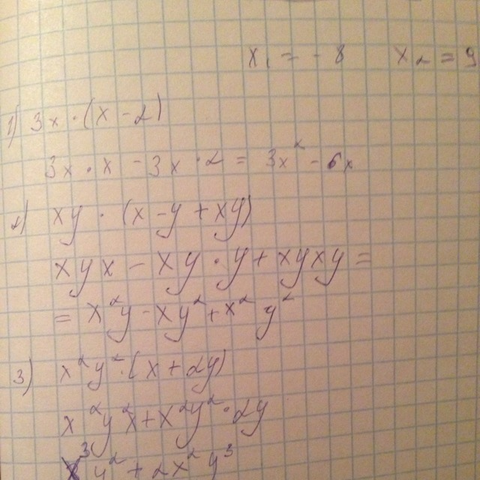 x₁ = - 8 x₂ = 9
1) 3x · (x - 2)
3x · x - 3x · 2 = 3x² - 6x
2) xy · (x - y + xy)
xyx - xy · y + xyxy =
= x²y - xy² + x² y²
3) x²y² · (x + 2y)
x²y²x + x²y² · 2y
x³y² + 2x²y³